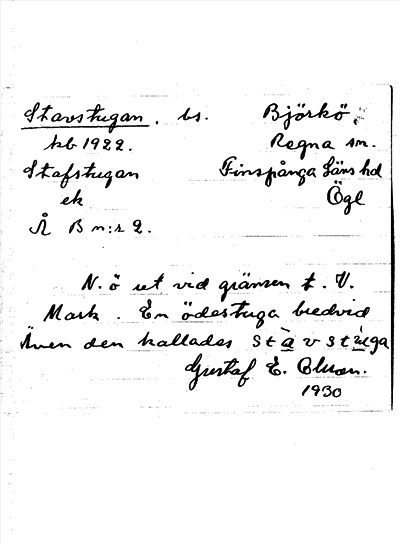 Stavstugan. bs. Björkö
kb 1922. Regna sn.
Stafstugan Finspånga läns hd
ek Ögl
Å B n:r 2.
N. ö ut vid gränsen t. V.
Mark. En ödestuga bredvid
Även den kallades stàvstùga
Gustaf E.
1930